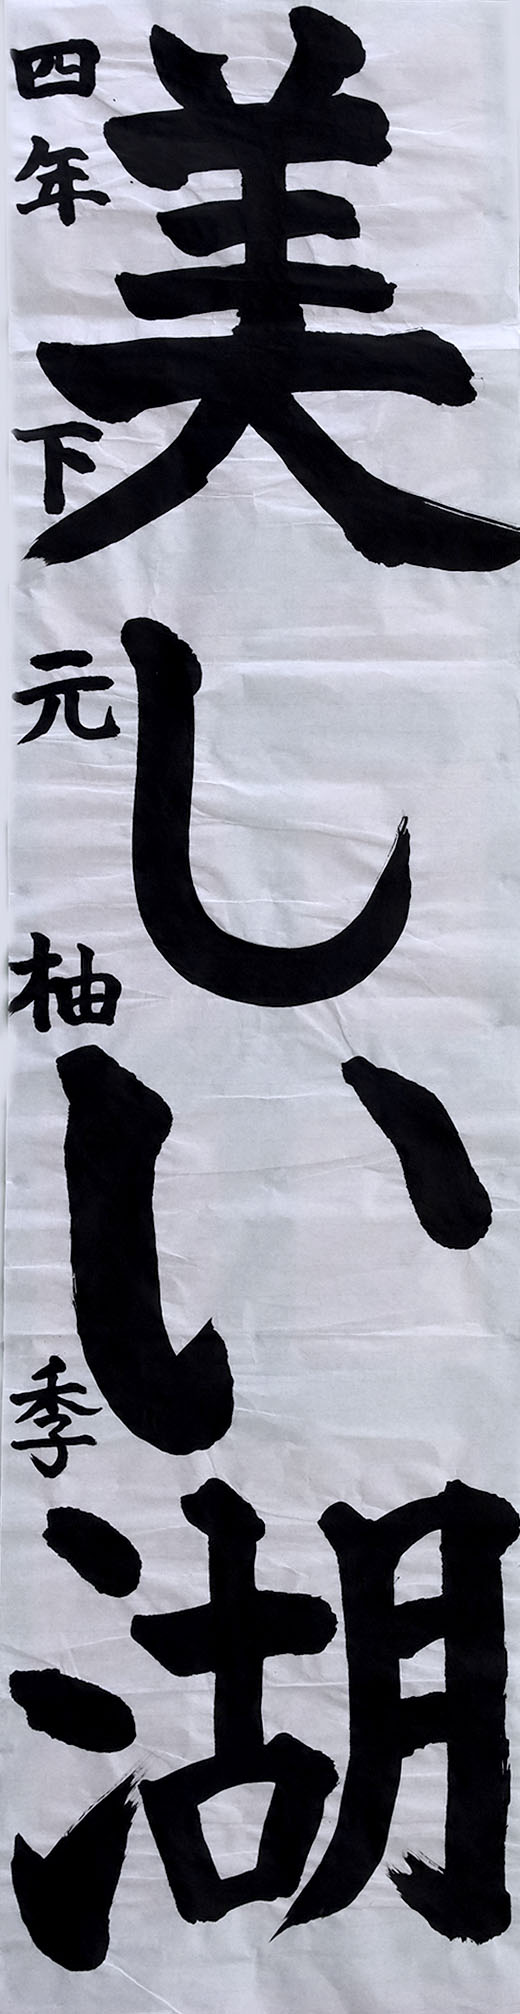 美しい湖
四年 下元 柚季